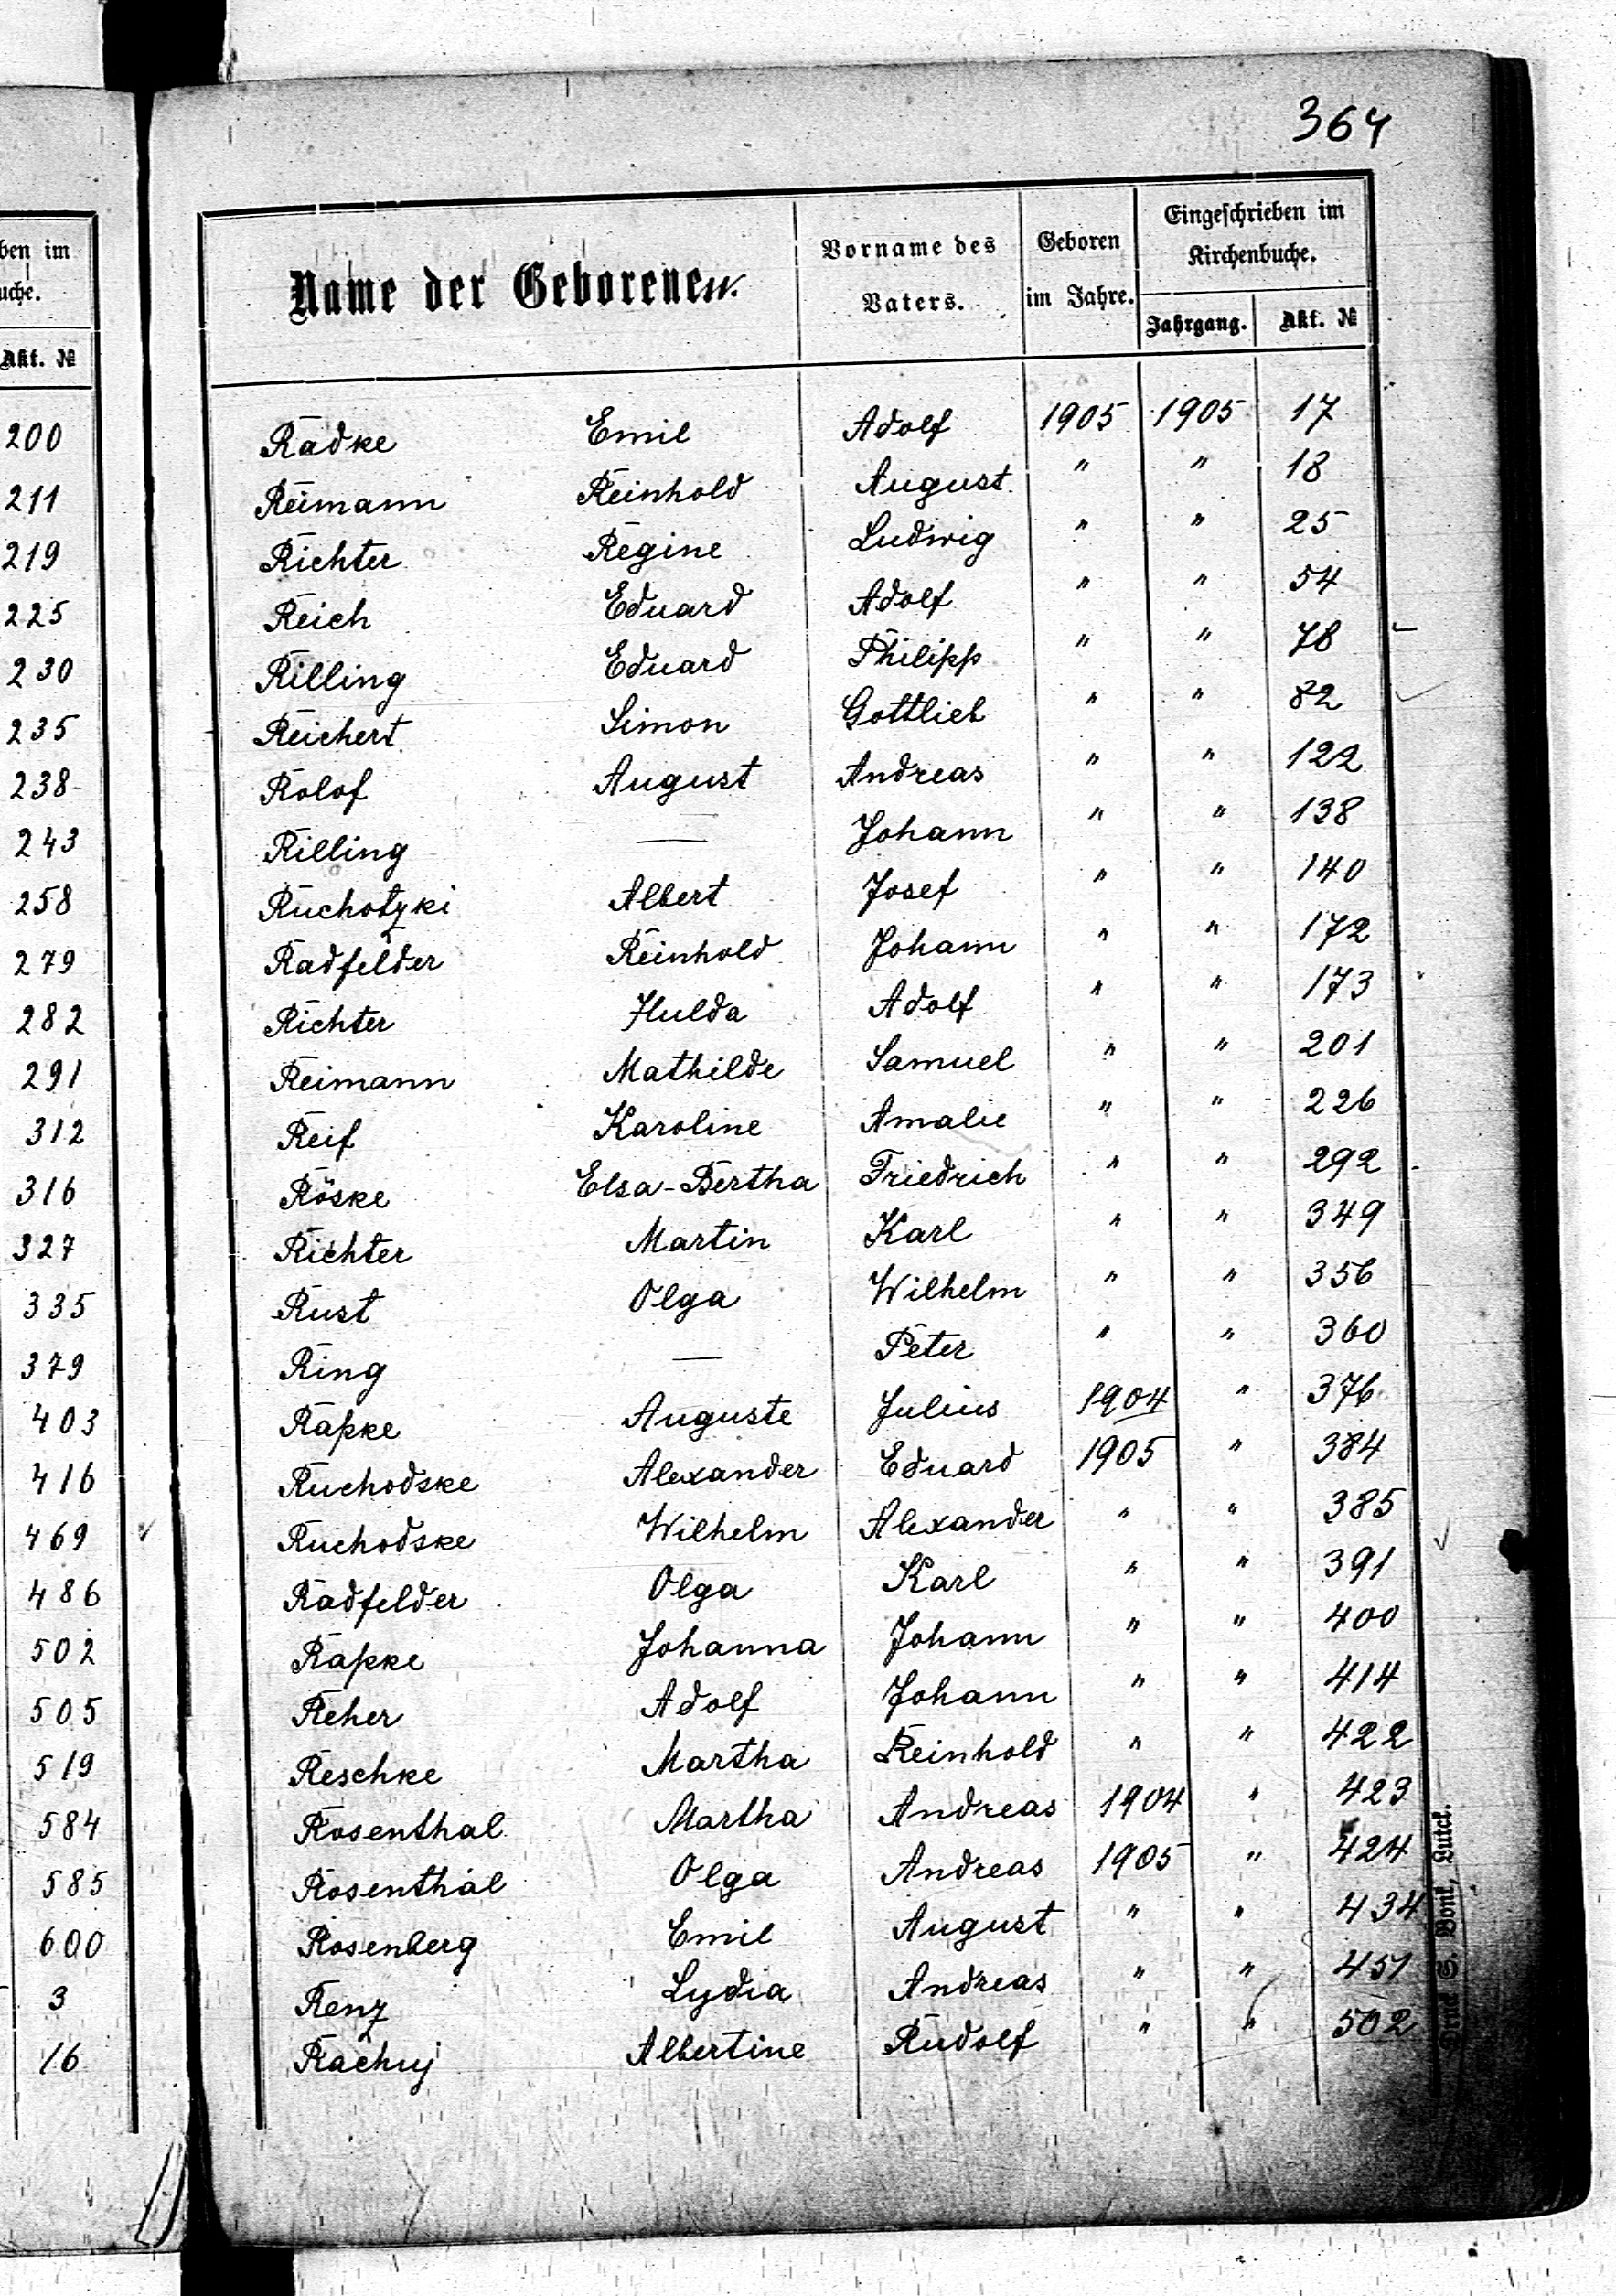 364
ben im
uche.
Akt. №
200
211
219
225
230
235
238
243
258
279
282
291
312
316
327
335
379
403
416
469
486
502
505
519
584
585
600
3
16
Name der Geborenen.
Vorname des Vaters.
Geboren im Jahre.
Eingeschrieben im Kirchenbuche.
Jahrgang. Akt. №
Radke Emil Adolf 1905 1905 17
Reimann Reinhold August " " 18
Richter Regine Ludwig " " 25
Reich Eduard Adolf " " 54
Rilling Eduard Philipp " " 78
Reichert Simon Gottlieb " " 82
Rolof August Andreas " " 122
Rilling — Johann " " 138
Ruchotzki Albert Josef " " 140
Radfelder Reinhold Johann " " 172
Richter Hulda Adolf " " 173
Reimann Mathilde Samuel " " 201
Reif Karoline Amalie " " 226
Röske Elsa-Bertha Friedrich " " 292
Richter Martin Karl " " 349
Rust Olga Wilhelm " " 356
Ring — Peter " " 360
Rapke Auguste Julius 1904 " 376
Ruchodske Alexander Eduard 1905 " 384
Ruchodske Wilhelm Alexander " " 385
Radfelder Olga Karl " " 391
Rapke Johanna Johann " " 400
Reher Adolf Johann " " 414
Reschke Martha Reinhold " " 422
Rosenthal Martha Andreas 1904 " 423
Rosenthal Olga Andreas 1905 " 424
Rosenberg Emil August " " 434
Renz Lydia Andreas " " 451
Rachuj Albertine Rudolf " " 502